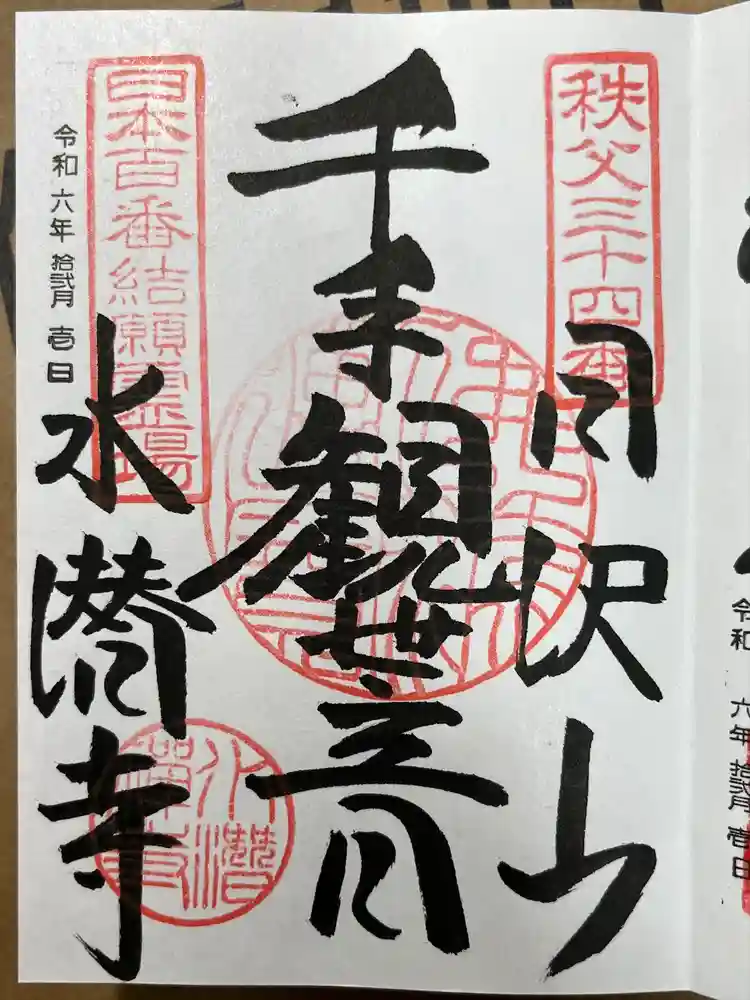 秩父三十四番
日沢山
千手観世音
日本百番結願霊場
水潜寺
令和六年拾弐月壱日
水潜
令和六年拾弐月壱日